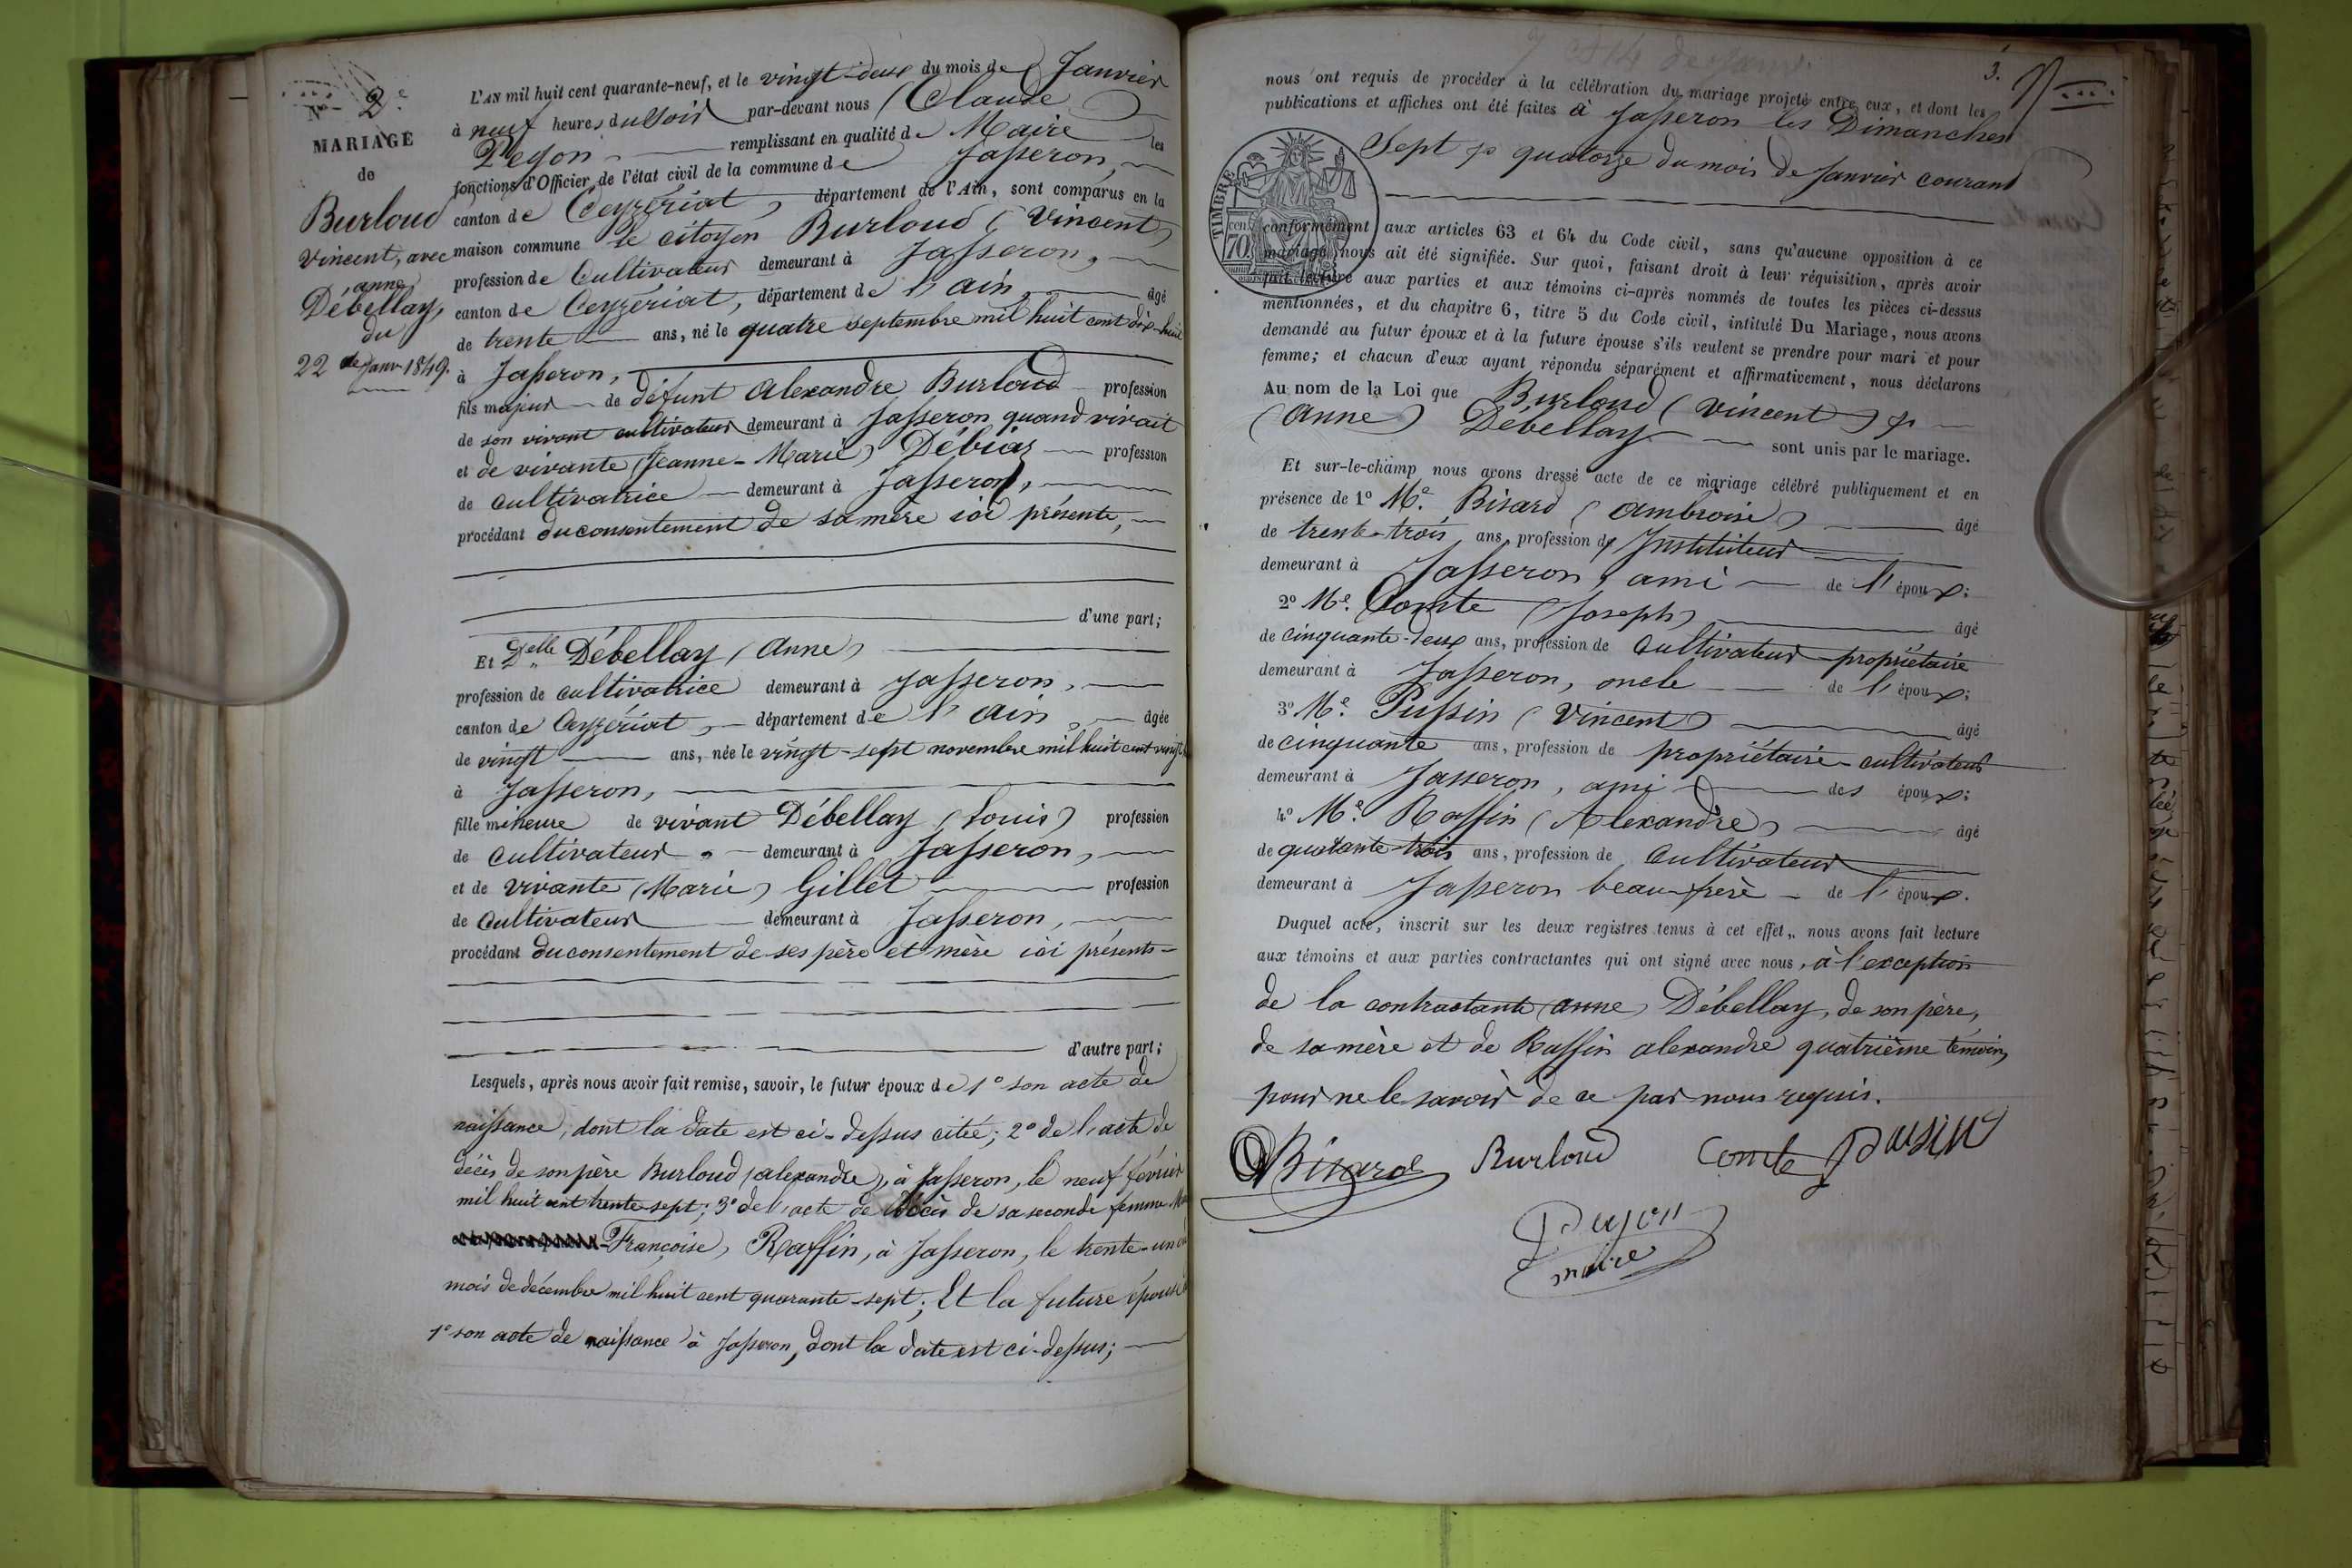 N° 2e
MARIAGE
de
Burloud
Vincent, avec
anne
Débellay,
du
22 de Janv. 1849.
L'AN mil huit cent quarante-neuf, et le vingt-deux du mois de Janvier
à neuf heures du Soir par-devant nous (Claude)
Peyon remplissant en qualité de Maire les
fonctions d'Officier de l'état civil de la commune de Jasseron,
canton de Ceyzériat, département de l'Ain, sont comparus en la
maison commune le citoyen Burloud (Vincent)
profession de Cultivateur demeurant à Jasseron,
canton de Ceyzériat, département de l'ain, âgé
de trente ans, né le quatre septembre mil huit cent dix-huit
à Jasseron,
fils majeur de défunt Alexandre Burloud profession
de son vivant cultivateur demeurant à Jasseron quand vivait
et de vivante (Jeanne-Marie) Débiaz profession
de cultivatrice demeurant à Jasseron,
procédant du consentement de sa mère ici présente,
d'une part;
Et Delle Débellay (Anne)
profession de cultivatrice demeurant à Jasseron,
canton de Ceyzériat, département de l'ain, âgée
de vingt ans, née le vingt-sept novembre mil huit cent vingt
à Jasseron,
fille mineure de vivant Débellay (Louis) profession
de cultivateur demeurant à Jasseron,
et de vivante (Marie) Gillet profession
de Cultivateur demeurant à Jasseron,
procédant du consentement de ses père et mère ici présents
d'autre part;
Lesquels, après nous avoir fait remise, savoir, le futur époux de 1° son acte de
naissance, dont la date est ci-dessus citée; 2° de l'acte de
décès de son père Burloud (alexandre), à Jasseron, le neuf février
mil huit cent trente-sept; 3° de l'acte de décès de sa seconde femme
Françoise) Raffin, à Jasseron, le trente-un
mois de décembre mil huit cent quarante-sept; Et la future épouse
1° son acte de naissance à Jasseron, dont la date est ci-dessus;
3.
nous ont requis de procéder à la célébration du mariage projeté entre eux, et dont les
publications et affiches ont été faites à Jasseron les Dimanches
Sept & quatorze du mois de Janvier courant
TIMBRE
70 cen
conformément aux articles 63 et 64 du Code civil, sans qu'aucune opposition à ce
mariage nous ait été signifiée. Sur quoi, faisant droit à leur réquisition, après avoir
fait lecture aux parties et aux témoins ci-après nommés de toutes les pièces ci-dessus
mentionnées, et du chapitre 6, titre 5 du Code civil, intitulé Du Mariage, nous avons
demandé au futur époux et à la future épouse s'ils veulent se prendre pour mari et pour
femme; et chacun d'eux ayant répondu séparément et affirmativement, nous déclarons
Au nom de la Loi que Burloud (Vincent) &
(Anne) Débellay sont unis par le mariage.
Et sur-le-champ nous avons dressé acte de ce mariage célébré publiquement et en
présence de 1° Me. Bisard (Ambroise) âgé
de trente-trois ans, profession d' Instituteur
demeurant à Jasseron, ami de l'époux;
2° Me. Comte (Joseph) âgé
de cinquante-deux ans, profession de Cultivateur propriétaire
demeurant à Jasseron, oncle de l'époux;
3° Me. Pussin (Vincent) âgé
de cinquante ans, profession de propriétaire-cultivateur
demeurant à Jasseron, ami des époux;
4° Me. Raffin (Alexandre) âgé
de quarante-trois ans, profession de Cultivateur
demeurant à Jasseron beau-frère de l'époux.
Duquel acte, inscrit sur les deux registres tenus à cet effet, nous avons fait lecture
aux témoins et aux parties contractantes qui ont signé avec nous, à l'exception
de la contractante (anne) Débellay, de son père,
de sa mère et de Raffin alexandre quatrième témoin,
pour ne le savoir de ce par nous requis.
Bisard Burloud Comte Pusin
Peyon
maire